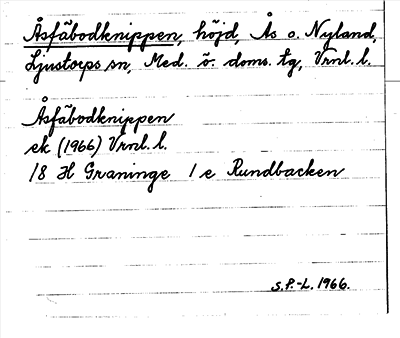 Åsfäbodknippen, höjd, Ås o. Nyland,
Ljustorps sn, Med. ö. doms. tg, Vrnl. l.
Åsfäbodknippen
ek (1966) Vrnl. l.
18 H Graninge 1 e Rundbacken
S.P.-L. 1966.